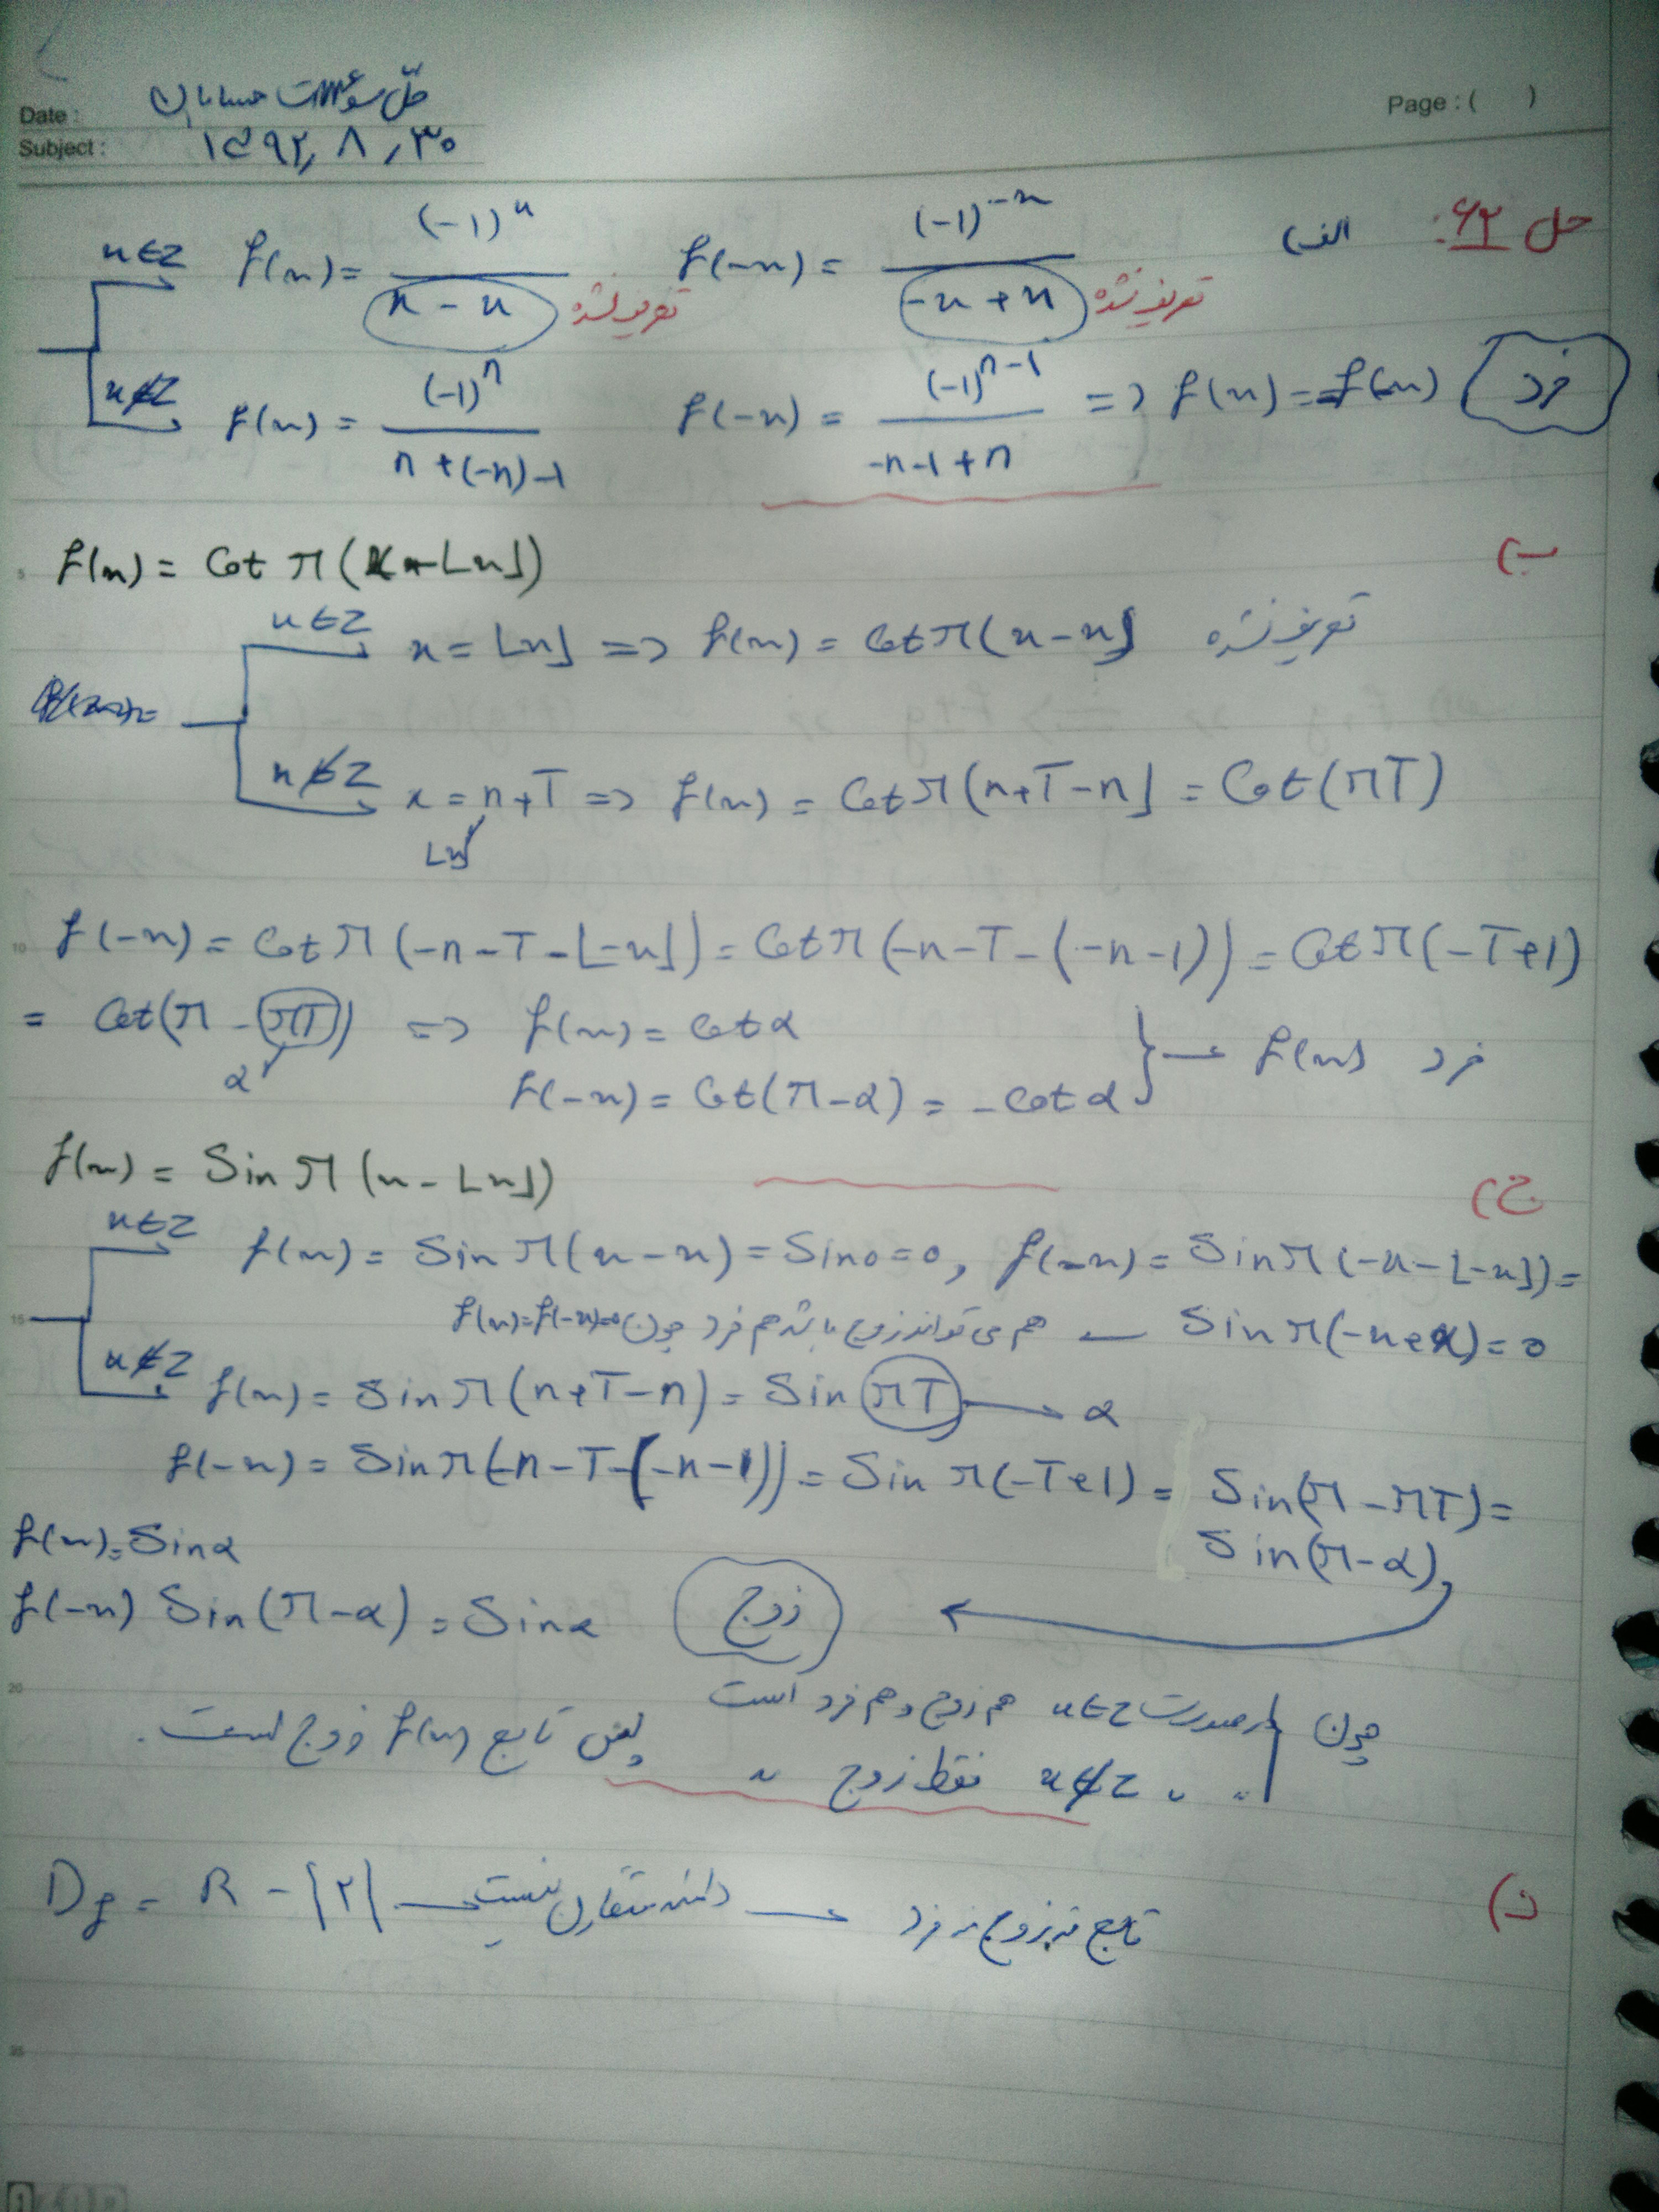 Date: حل سؤالات حسابان Page: ( )
Subject: ۱۳۹۲٫۸٫۳۰
حل ۶۲: الف)
x∈Z f(x) = (-1)^x / (x - x) تعریف نشده f(-x) = (-1)^-x / (-x + x) تعریف نشده
x∉Z f(x) = (-1)^n / (n + (-n) - 1) f(-x) = (-1)^n-1 / (-n-1+n) => f(x) = -f(-x) فرد
ب)
f(x) = Cot π(x - ⌊x⌋)
x∈Z x = ⌊x⌋ => f(x) = Cot π(x - x) تعریف نشده
x∉Z x = n+T => f(x) = Cot π(n+T-n) = Cot(πT)
⌊x⌋
f(-x) = Cot π(-n-T-⌊-x⌋) = Cot π(-n-T-(-n-1)) = Cot π(-T+1)
= Cot(π - πT) => f(x) = Cot α
α
f(-x) = Cot(π-α) = -Cot α } → f(x) فرد
ج)
f(x) = Sin π(x - ⌊x⌋)
x∈Z f(x) = Sin π(x - x) = Sin 0 = 0, f(-x) = Sin π(-x - ⌊-x⌋) =
Sin π(-x+x) = 0 ← هم می تواند زوج باشد هم فرد چون f(x)=f(-x)=0
x∉Z f(x) = Sin π(n+T-n) = Sin πT → α
f(-x) = Sin π(-n-T-(-n-1)) = Sin π(-T+1) = Sin(π-πT) =
Sin(π-α)
f(x) = Sin α
f(-x) Sin(π-α) = Sin α زوج
چون در صورت x∈Z هم زوج و هم فرد است
" " x∉Z فقط زوج " پس تابع f(x) زوج است.
د)
Df = R - {۲} → دامنه متقارن نیست → تابع نه زوج نه فرد